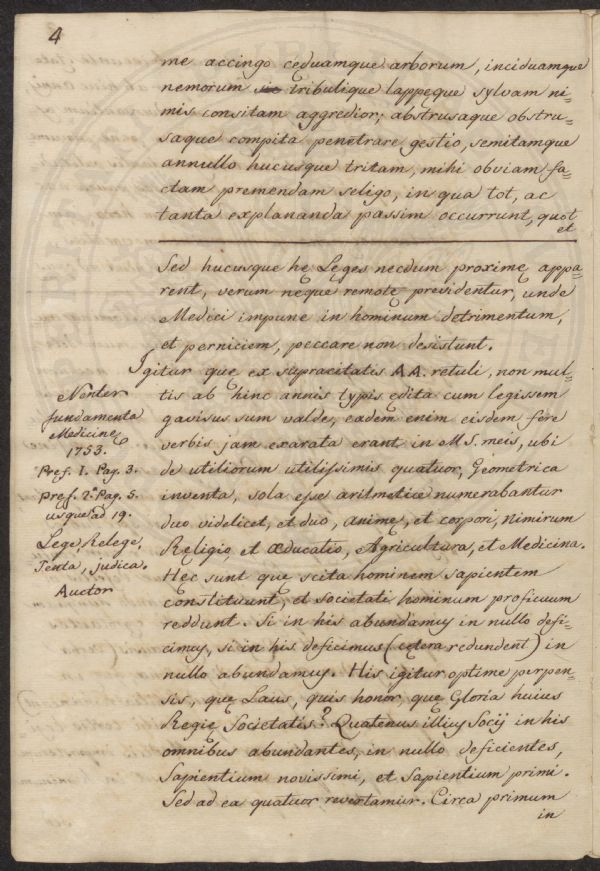 4
me accingo cęduamque arborum, inciduamque
nemorum tribulique lappęque sylvam ni=
mis consitam aggredior; abstrusaque obstru=
saque compita penetrare gestio, semitamque
annullo hucusque tritam, mihi obviam fa=
ctam premendam seligo, in qua tot, ac
tanta explananda passim occurrunt, quot
et
Sed hucusque hę Lęges necdum proximę appa=
rent, verum nęque remotę pręvidentur, unde
Medici impune in hominum detrimentum,
et perniciem, peccare non desistunt.
Igitur quę ex supracitatis AA. retuli, non mul=
tis ab hinc annis typis ędita cum legissem
gavisus sum valde, eadem enim eisdem fere
verbis jam exarata erant in MS. meis, ubi
de utiliorum utilissimis quatuor, Geometrica
inventa, sola esse aritmetice numerabantur
duo videlicet, et duo, animę, et corpori, nimirum
Religio, et æducatio, Agricultura, et Medicina.
Hęc sunt quę scita hominem sapientem
constituunt, et societati hominum proficuum
reddunt. Si in his abundamus in nullo defi=
cimus, si in his deficimus (cętera redundent) in
nullo abundamus. His igitur optime perpen=
sis, quę Laus, quis honor, quę Gloria huius
Regię Societatis? Quatenus illius Socij in his
omnibus abundantes, in nullo deficientes,
Sapientium novissimi, et Sapientium primi.
Sed ad ea quatuor revertamur. Circa primum
in
Nenter
fundamenta
Medicinę
1753.
Pręf. 1. Pag. 3.
Pręf. 2.ª Pag. 5.
usque ad 19.
Lege, Relege,
Tenta, judica.
Auctor